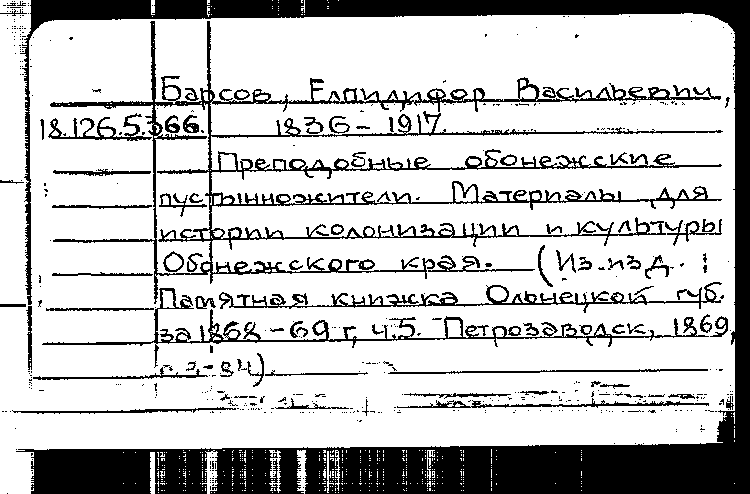 Барсов, Елпидифор Васильевич,
18.126.5.366. 1836 - 1917.
Преподобные обонежские
пустынножители. Материалы для
истории колонизации и культуры
Обонежского края. (Из изд.:
Памятная книжка Олонецкой губ.
за 1868-69 г, ч.5. Петрозаводск, 1869,
с.3-84).